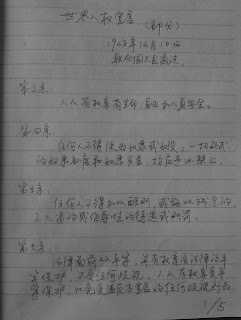 世界人权宣言
(部分)
1948年12月10日
联合国大会通过
第三条:
人人有权享有生命、自由和人身安全。
第四条:
任何人不得使为奴隶或奴役,一切形式
的奴隶制度和奴隶买卖,均应予以禁止。
第五条:
任何人不得加以酷刑,或施以残忍的
不人道的或侮辱性的待遇或刑罚。
第七条:
法律面前人人平等,并有权享受法律的平
等保护,不受任何歧视。人人有权享受平
等保护,以免受违反本宣言的任何歧视行为
1/5